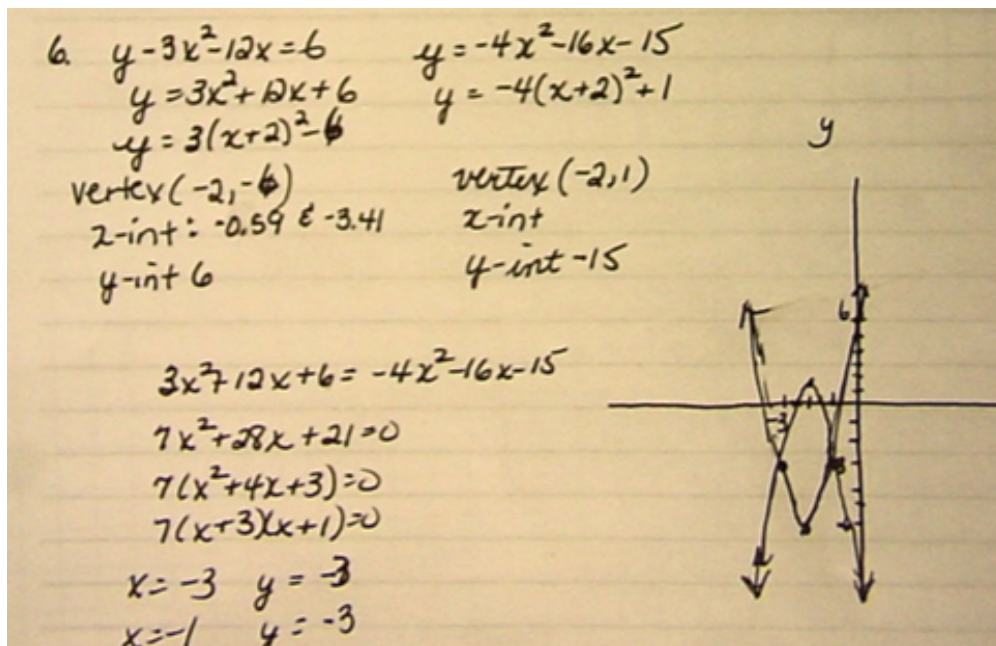 6. y-3x²-12x=6
y=3x²+12x+6
y=3(x+2)²-6
vertex(-2,-6)
x-int: -0.59 & -3.41
y-int 6
y=-4x²-16x-15
y=-4(x+2)²+1
vertex(-2,1)
x-int
y-int -15
3x²+12x+6=-4x²-16x-15
7x²+28x+21=0
7(x²+4x+3)=0
7(x+3)(x+1)=0
x=-3 y=-3
x=-1 y=-3
y
6
-3